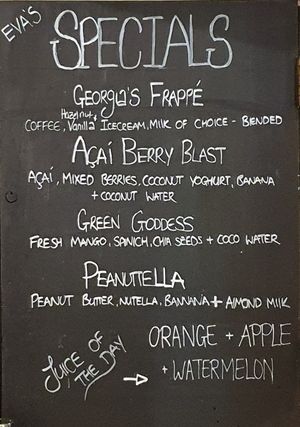 EVA'S
SPECIALS
GEORGIA'S FRAPPÉ
Hazelnut,
COFFEE, Vanilla ICECREAM, MILK OF CHOICE - BLENDED
AÇAÍ BERRY BLAST
AÇAÍ, MIXED BERRIES, COCONUT YOGHURT, BANANA
+ COCONUT WATER
GREEN GODDESS
FRESH MANGO, SPNICH, CHIA SEEDS + COCO WATER
PEANUTTELLA
PEANUT BUTTER, NUTELLA, BANNANA + ALMOND MILK
JUICE OF
THE DAY
→ ORANGE + APPLE
+ WATERMELON